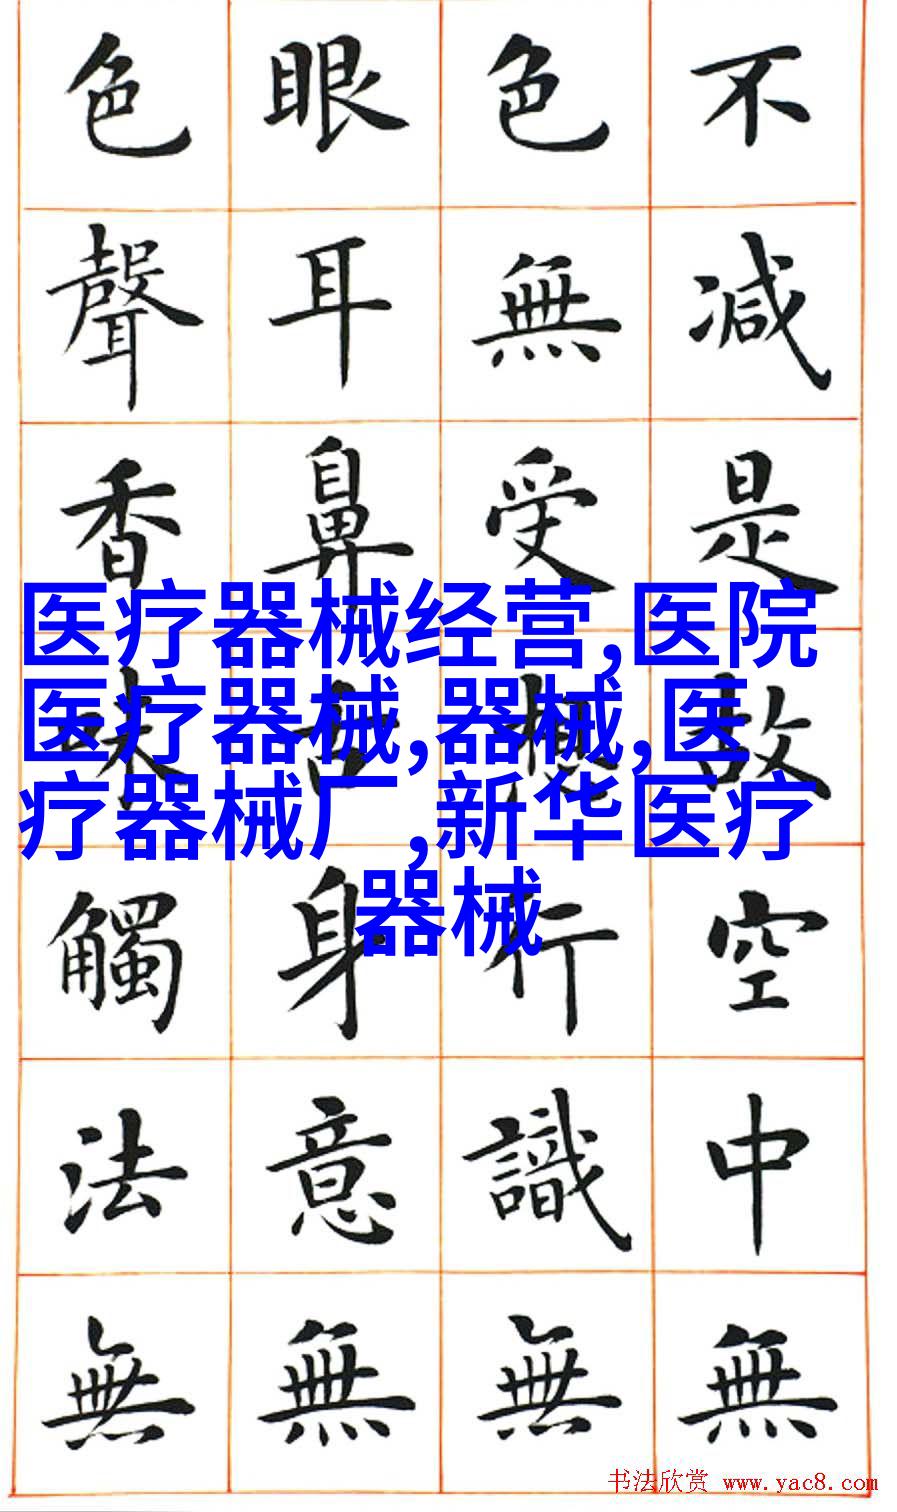 不減是故空中無
色無受想行識無
眼耳鼻舌身意無
色聲香味觸法無
医疗器械经营,医院
医疗器械,器械,医
疗器械厂,新华医疗
器械
书法欣赏 www.yac8.com